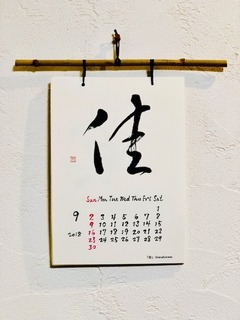 佳
Sun Mon Tue Wed Thu Fri Sat
1
9 2 3 4 5 6 7 8
9 10 11 12 13 14 15
2018 16 17 18 19 20 21 22
23 24 25 26 27 28 29
30